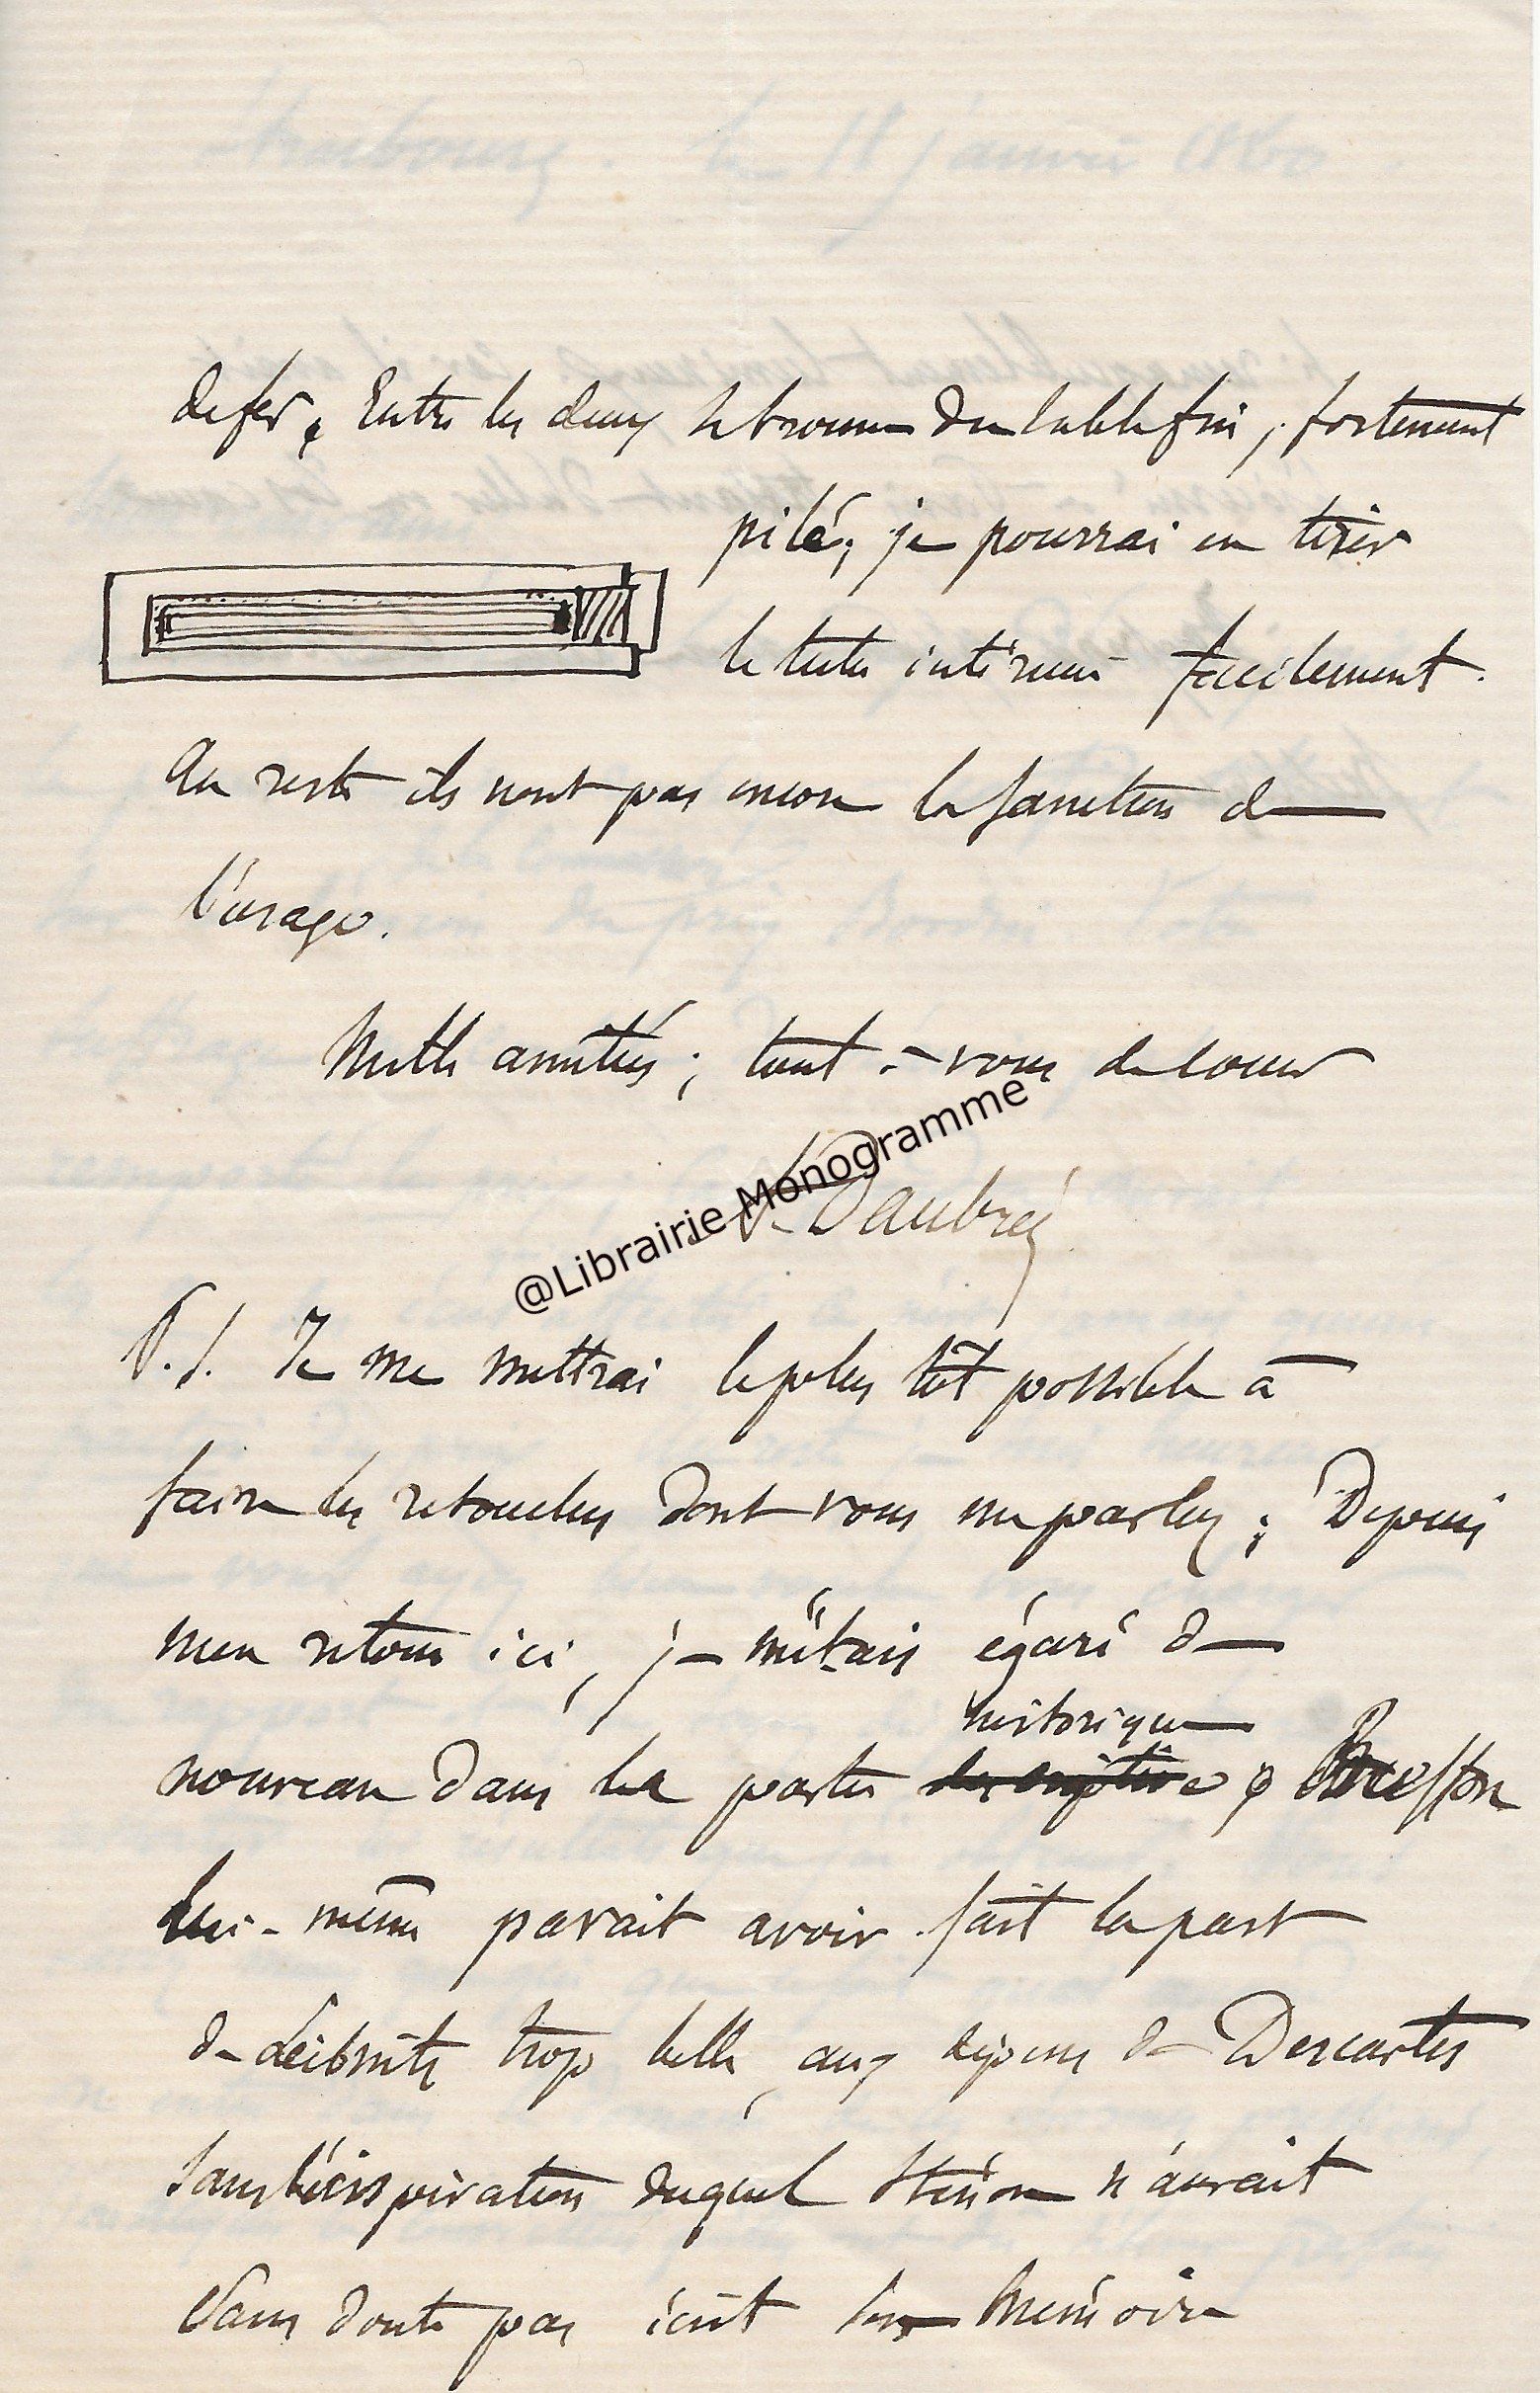 Strasbourg. le 11 janvier 1860
de fer. Entre les deux se trouve du sable fin, fortement
pilé; je pourrai en tirer
le tube intérieur facilement.
Au reste ils n'ont pas encore la sanction de
l'usage.
Mille amitiés; tout à vous de coeur
A. Daubrée
@Librairie Monogramme
P.S. Je me mettrai le plus tôt possible à
faire les retouches dont vous me parlez; Depuis
mon retour ici, je m'étais égaré de
historique
nouveau dans la partie descriptive;
lui-même parait avoir fait la part
de Leibnitz trop belle, aux dépens de Descartes
sans l'inspiration duquel Sténon n'aurait
sans doute pas écrit son Mémoire